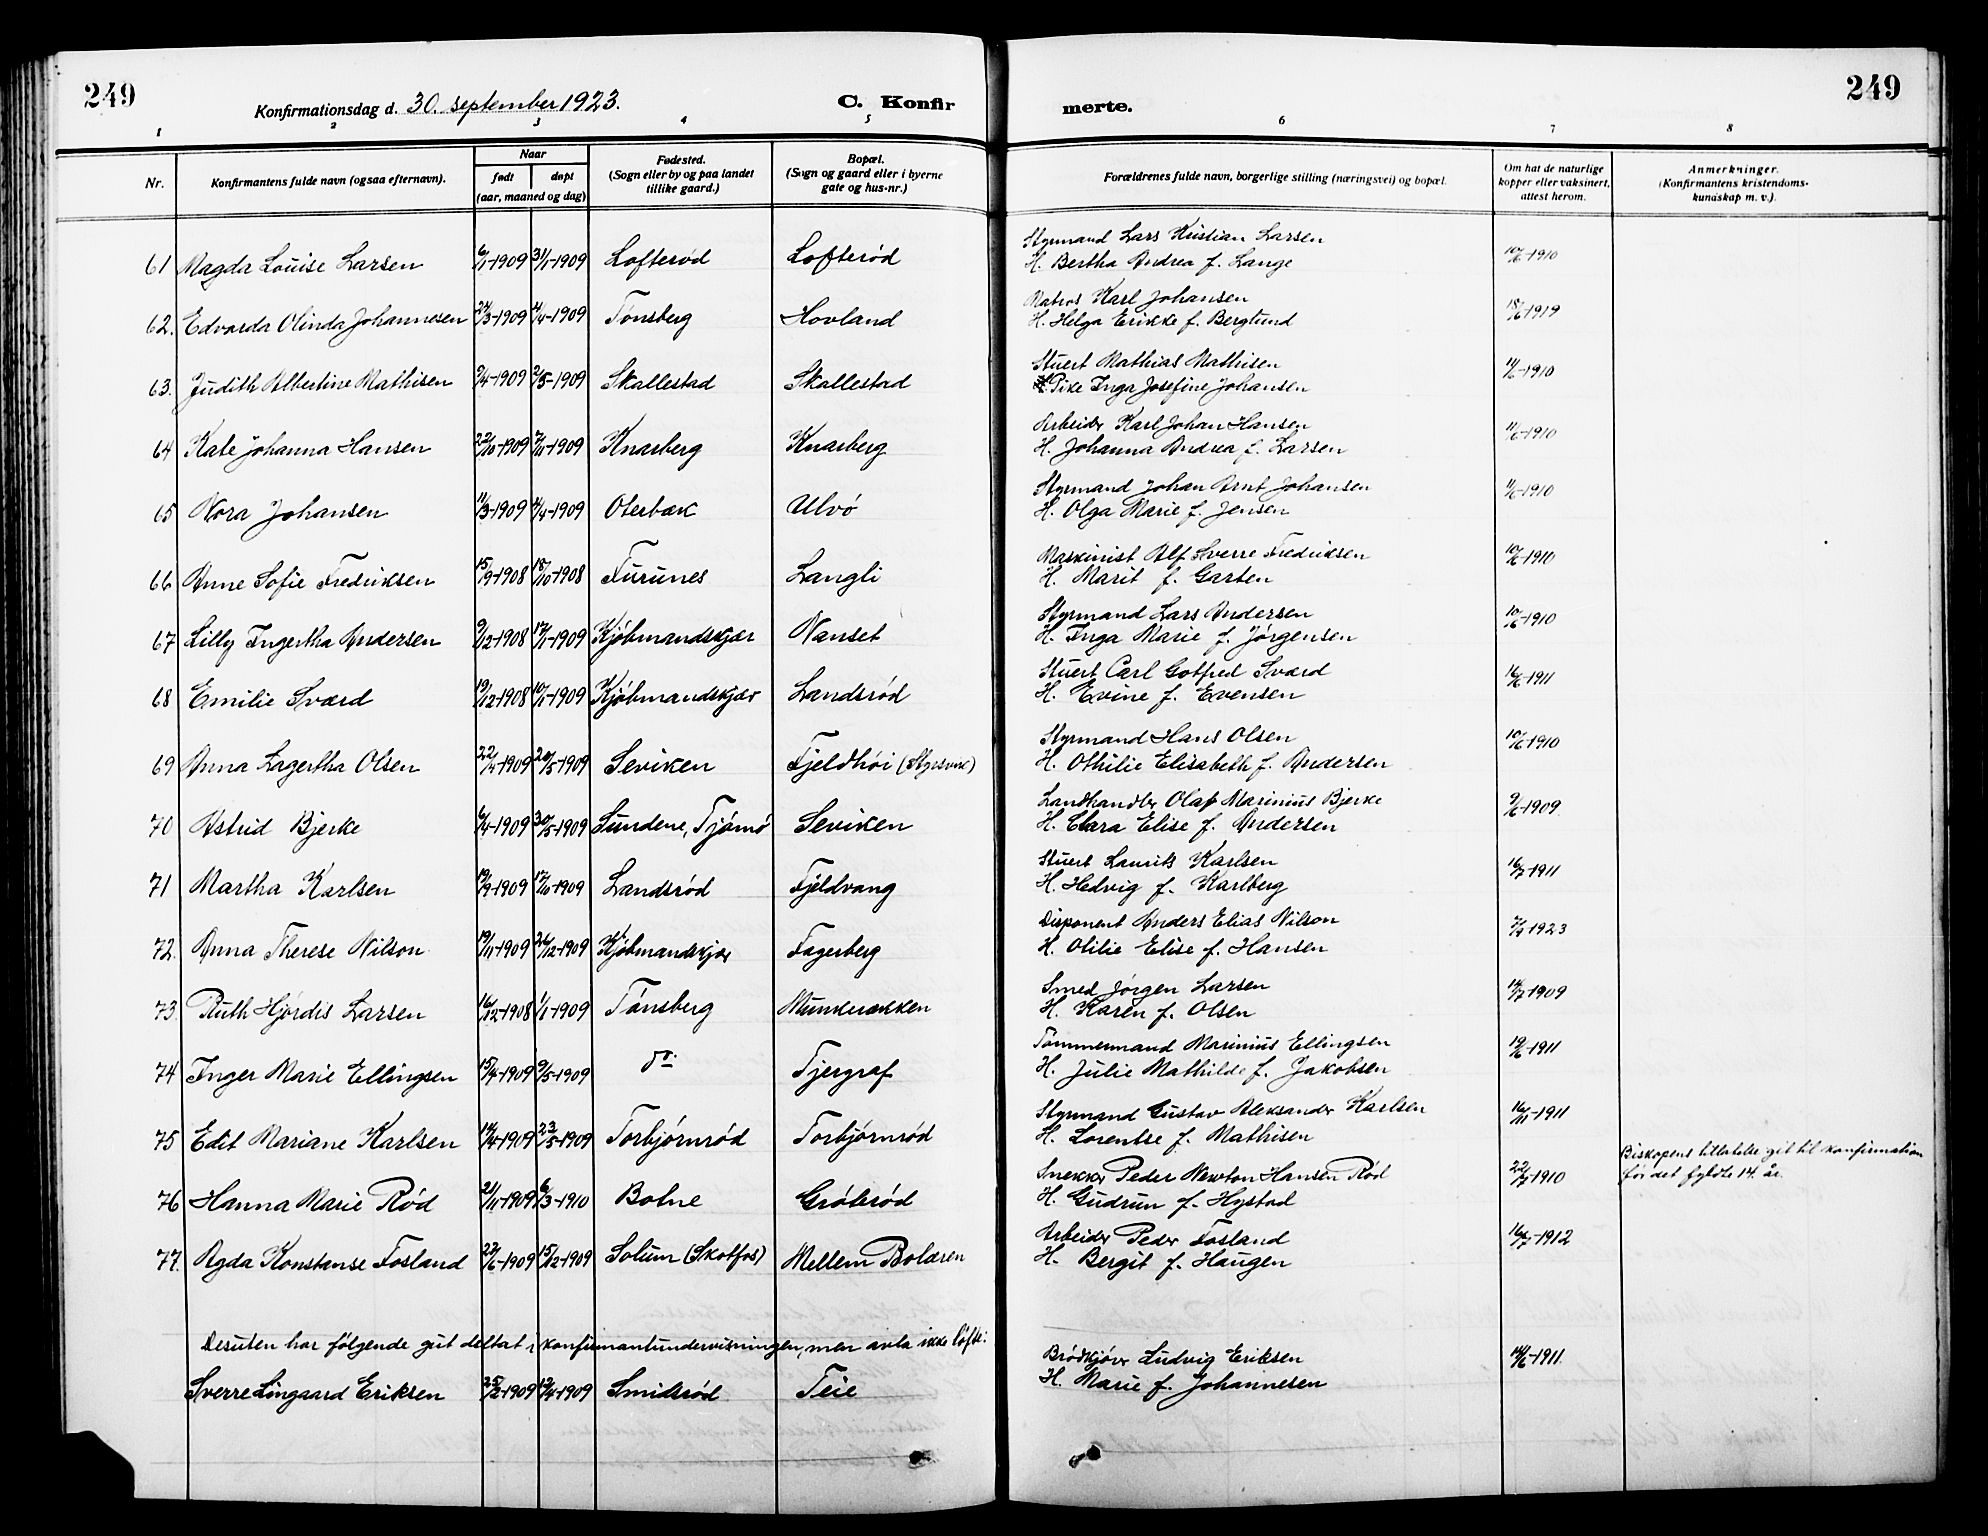 249
Konfirmationsdag d. 30. september 1923.
C. Konfir
merte.
249
1 2 3 4 5 6 7 8
Nr.
Konfirmantens fulde navn (ogsaa efternavn).
Naar
født
døpt
(aar, maaned og dag)
Fødested.
(Sogn eller by og paa landet
tillike gaard.)
Bopæl.
(Sogn og gaard eller i byerne
gate og hus-nr.)
Forældrenes fulde navn, borgerlige stilling (næringsvei) og bopæl.
Om hat de naturlige
kopper eller vaksinert,
attest herom.
Anmerkninger.
(Konfirmantens kristendoms-
kundskap m. v.).
Styrmand Lars Kristian Larsen
61 Magda Louise Larsen 6/1-1909 31/1-1909 Lofterød Lofterød H. Bertha Andrea f. Lange 10/6-1910
Matros Karl Johansen
62. Edvarda Olinda Johannesen 24/3-1909 4/4-1909 Tønsberg Hovland H. Helga Erikke f. Berglund 18/6-1919
Stuert Mathias Mathisen
63. Judith Albertine Mathisen 9/4-1909 2/5-1909 Skallestad Skallestad Pike Inga Josefine Johansen 11/6-1910
Arbeider Karl Johan Hansen
64 Kate Johanna Hansen 22/10-1909 7/11-1909 Knarberg Knarberg H. Johanna Andrea f. Larsen 11/6-1910
Styrmand Johan Arnt Johansen
65 Nora Johansen 11/3-1909 4/4-1909 Oterbæk Ulvø H. Olga Marie f. Jensen 11/6-1910
Maskinist Alf Sverre Fredriksen
66 Anne Sofie Fredriksen 15/9-1908 18/10-1908 Furunes Langli H. Marit f. Garten 10/6-1910
Styrmand Lars Andersen
67 Lilly Ingertha Andersen 9/12-1908 17/1-1909 Kjøbmandskjær Nanset H. Inga Marie f. Jørgensen 10/6-1910
Stuert Carl Gotfred Sværd
68 Emilie Sværd 19/12-1908 10/1-1909 Kjøbmandskjær Landsrød H. Evine f. Evensen 16/6-1911
Styrmand Hans Olsen
69 Anna Lagertha Olsen 22/4-1909 20/5-1909 Seviken Fjeldhøi (Styrsvik) H. Othilie Elisabeth f. Andersen 10/6-1910
Landhandler Olaf Marinius Bjerke
70 Astrid Bjerke 6/4-1909 30/5-1909 Sundene, Tjømø Seviken H. Clara Elise f. Andersen 9/6-1909
Stuert Laurits Karlsen
71 Martha Karlsen 19/9-1909 17/10-1909 Landsrød Fjeldvang H. Hedvig f. Karlberg 16/7-1911
Disponent Anders Elias Nilson
72. Anna Therese Nilson 19/11-1909 26/12-1909 Kjøbmandskjær Fagerberg H. Otilie Elise f. Hansen 7/7-1923
Smed Jørgen Larsen
73. Ruth Hjørdis Larsen 16/12-1908 1/1-1909 Tønsberg Munderækken H. Karen f. Olsen 14/7-1909
Tømmermand Marinius Ellingsen
74 Inger Marie Ellingsen 15/4-1909 9/5-1909 do. Tjergraf H. Julie Mathilde f. Jakobsen 19/6-1911
Styrmand Gustav Aleksander Karlsen
75 Edit Mariane Karlsen 14/4-1909 23/5-1909 Torbjørnrød Torbjørnrød H. Lorentse f. Mathisen 16/11-1911
Biskopens tillatelse git til konfirmation
før det fyldte 14. år.
Snekker Peder Newton Hansen Rød
76 Hanna Marie Rød 21/11-1909 6/3-1910 Botne Grøterød H. Gudrun f. Hystad 22/7-1910
Arbeider Peder Fosland
77. Agda Konstanse Fosland 22/6-1909 15/12-1909 Solum (Skotfos) Mellem Bolæren H. Bergit f. Haugen 16/7-1912
Desuten har følgende gut deltat i konfirmantundervisningen, men avla ikke løfte:
Brødkjører Ludvig Eriksen
Sverre Lingaard Eriksen 25/2-1909 12/4-1909 Smidsrød Teie H. Marie f. Johannesen 14/6-1911.